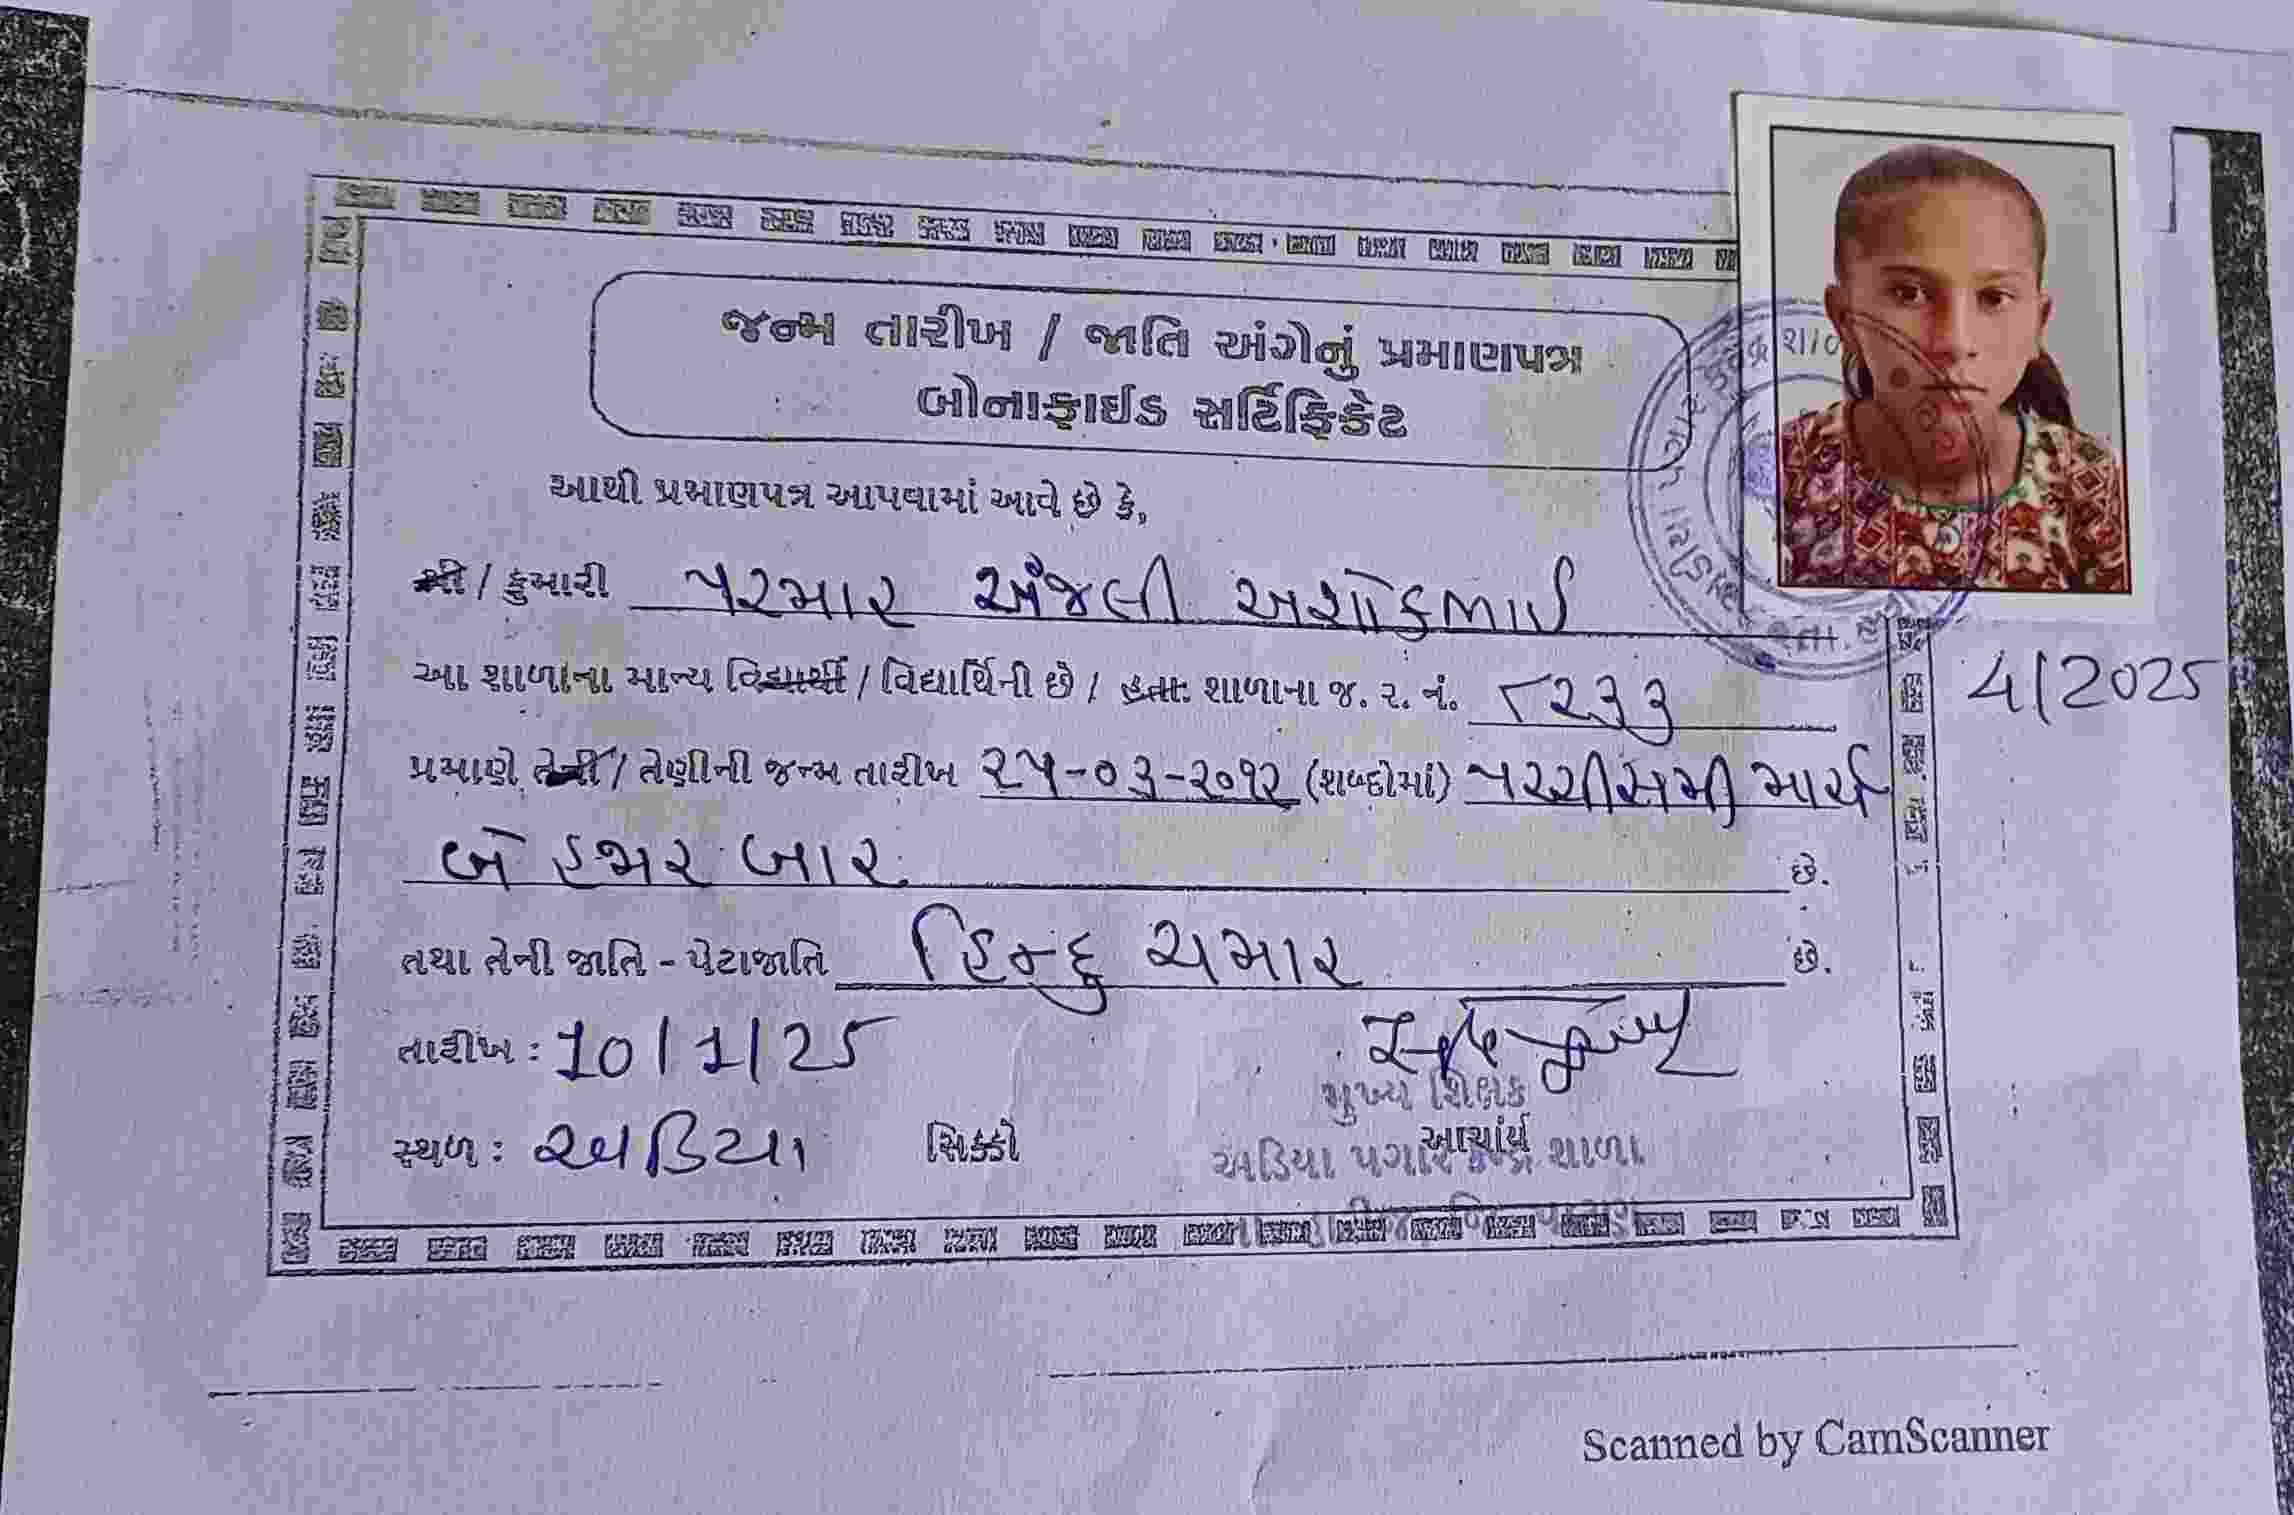 જન્મ તારીખ / જાતિ અંગેનું પ્રમાણપત્ર
બોનાફાઈડ સર્ટિફિકેટ
આથી પ્રમાણપત્ર આપવામાં આવે છે કે,
શ્રી / કુમારી પરમાર અંજલી અશોકભાઈ
આ શાળાના માન્ય વિદ્યાર્થી / વિદ્યાર્થિની છે / હતા. શાળાના જ. ર. નં. ૮૨૩૩
4/2025
પ્રમાણે તેની / તેણીની જન્મ તારીખ ૨૫-૦૩-૨૦૧૨ (શબ્દોમાં) પચ્ચીસમી માર્ચ
બે હજાર બાર છે.
તથા તેની જાતિ - પેટાજાતિ હિન્દુ ચમાર છે.
તારીખ : 10/1/25
મુખ્ય શિક્ષક
સ્થળ : અડિયા સિક્કો આચાર્ય
અડિયા પગાર કેન્દ્ર શાળા
Scanned by CamScanner